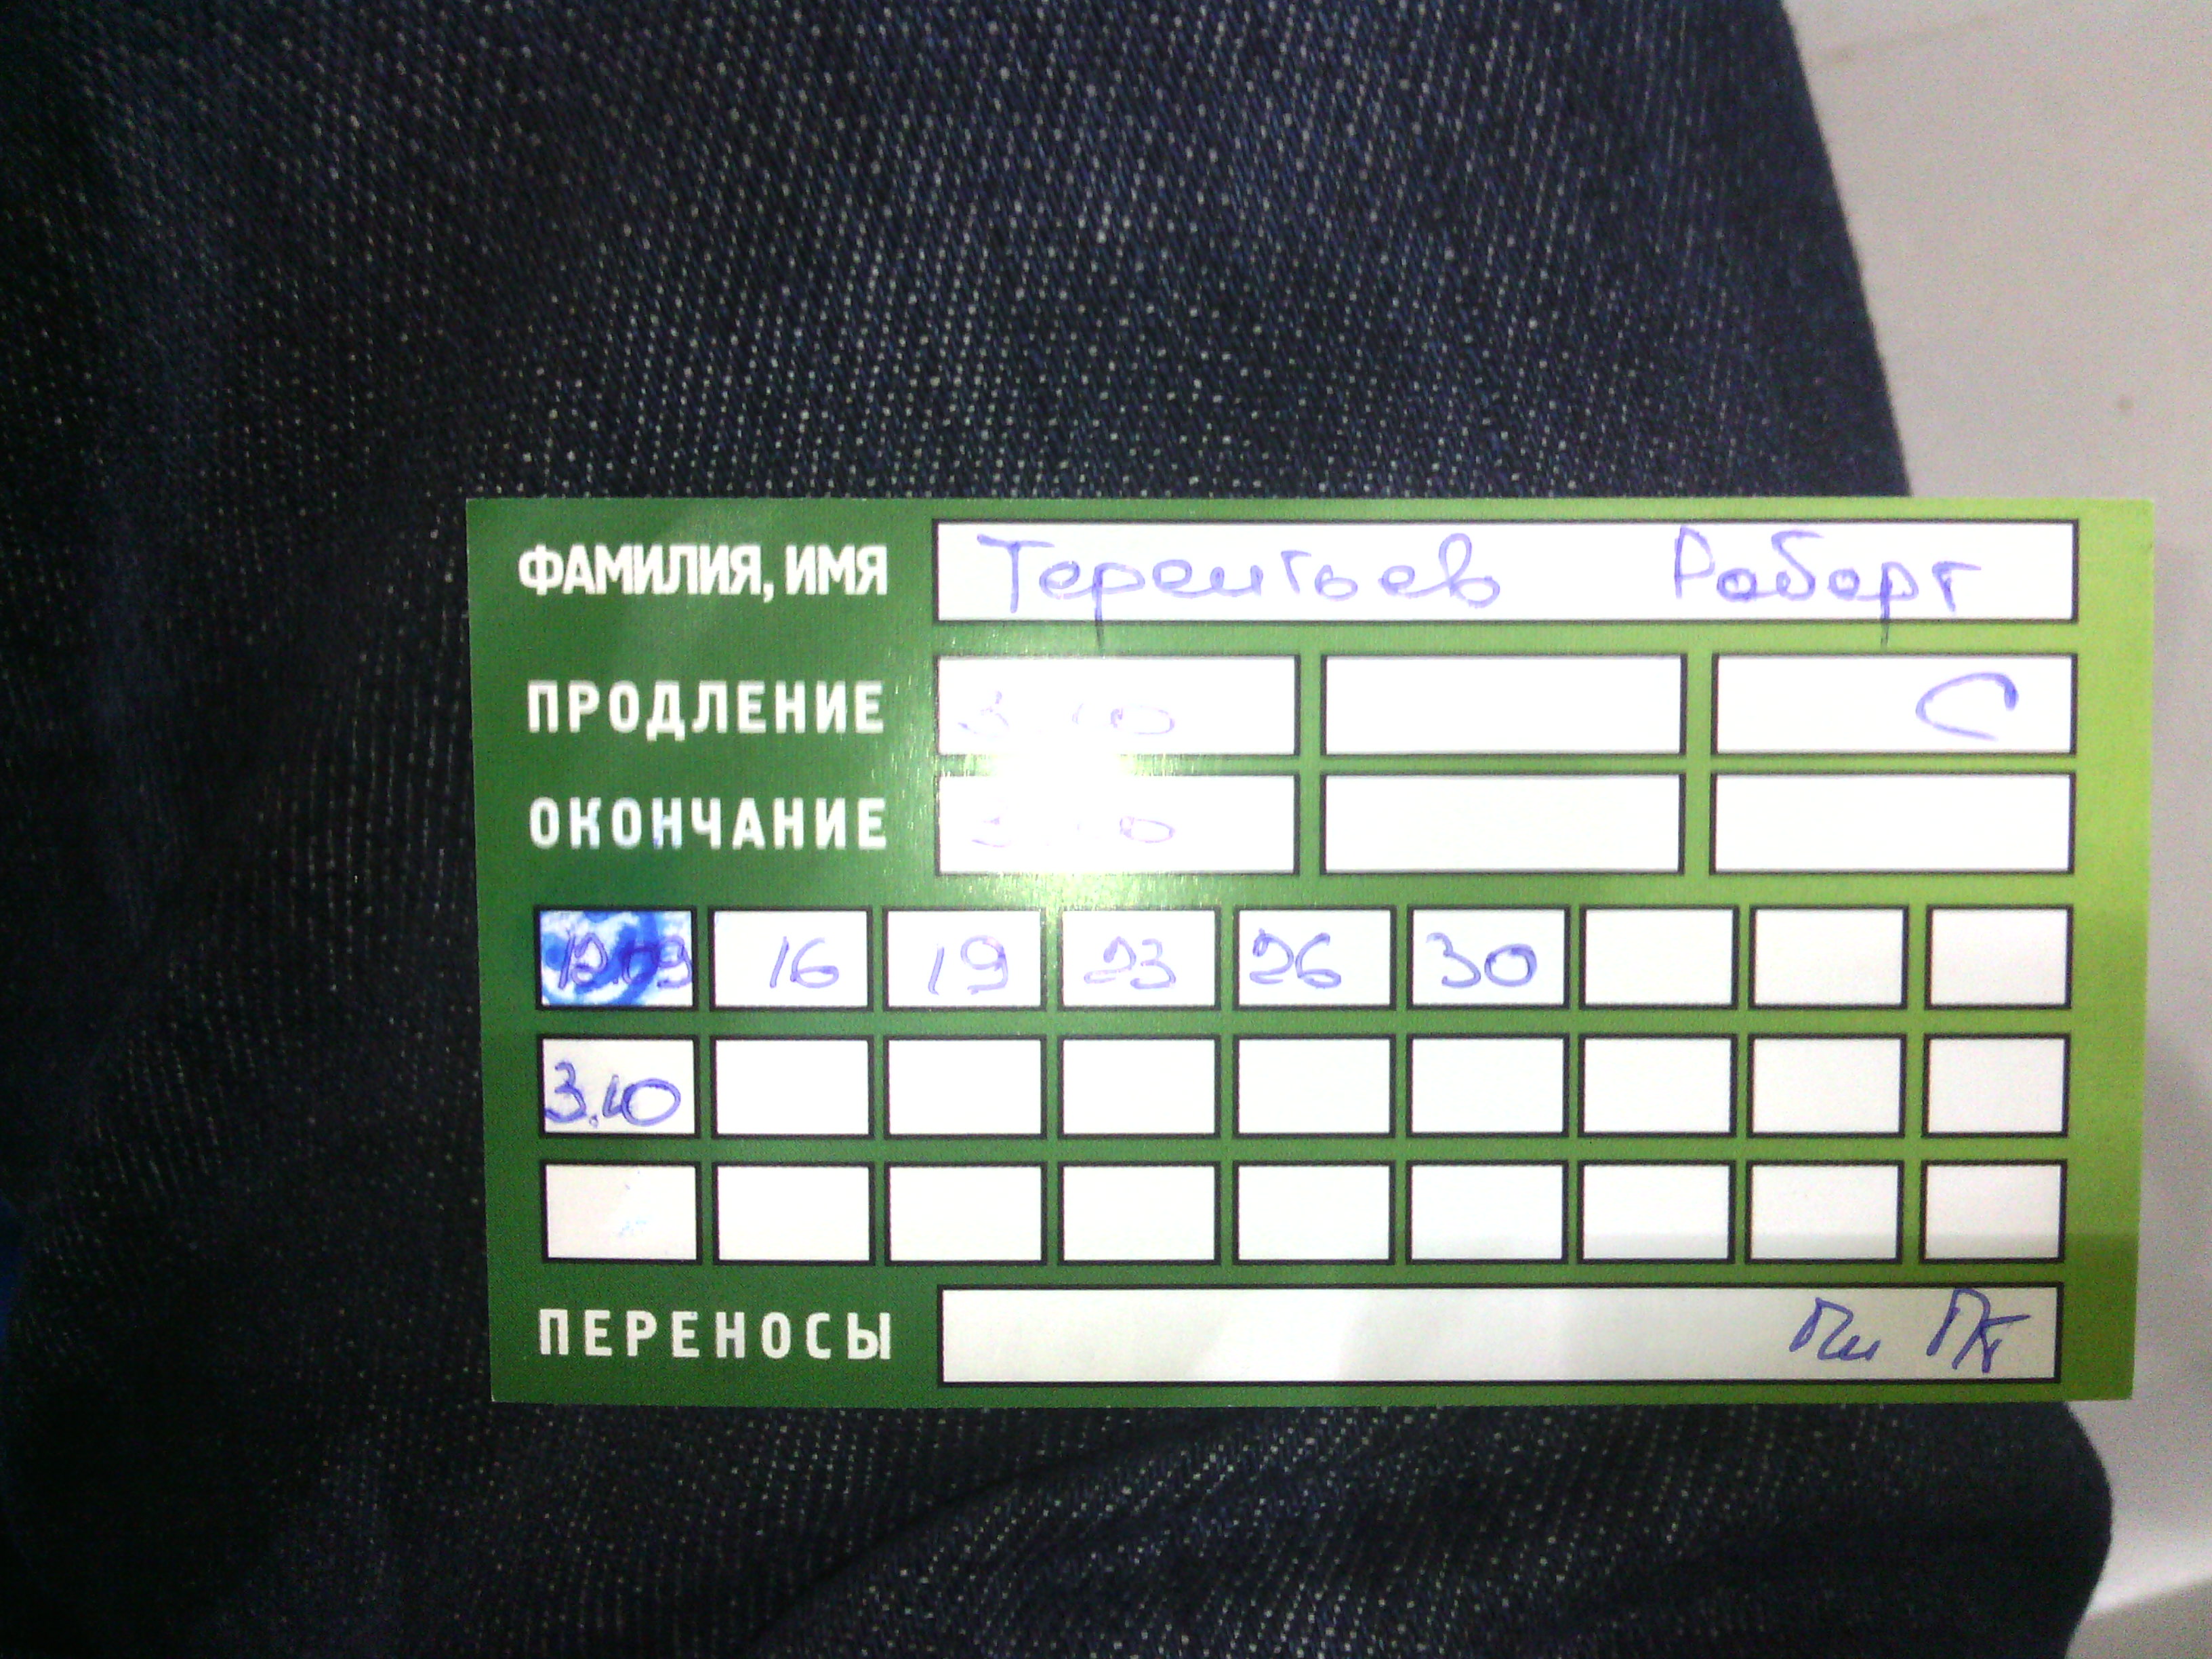 ФАМИЛИЯ, ИМЯ Терентьев Роберт
ПРОДЛЕНИЕ 3.10 С
ОКОНЧАНИЕ 3.10
12.09 16 19 23 26 30
3.10
ПЕРЕНОСЫ Пн Пт